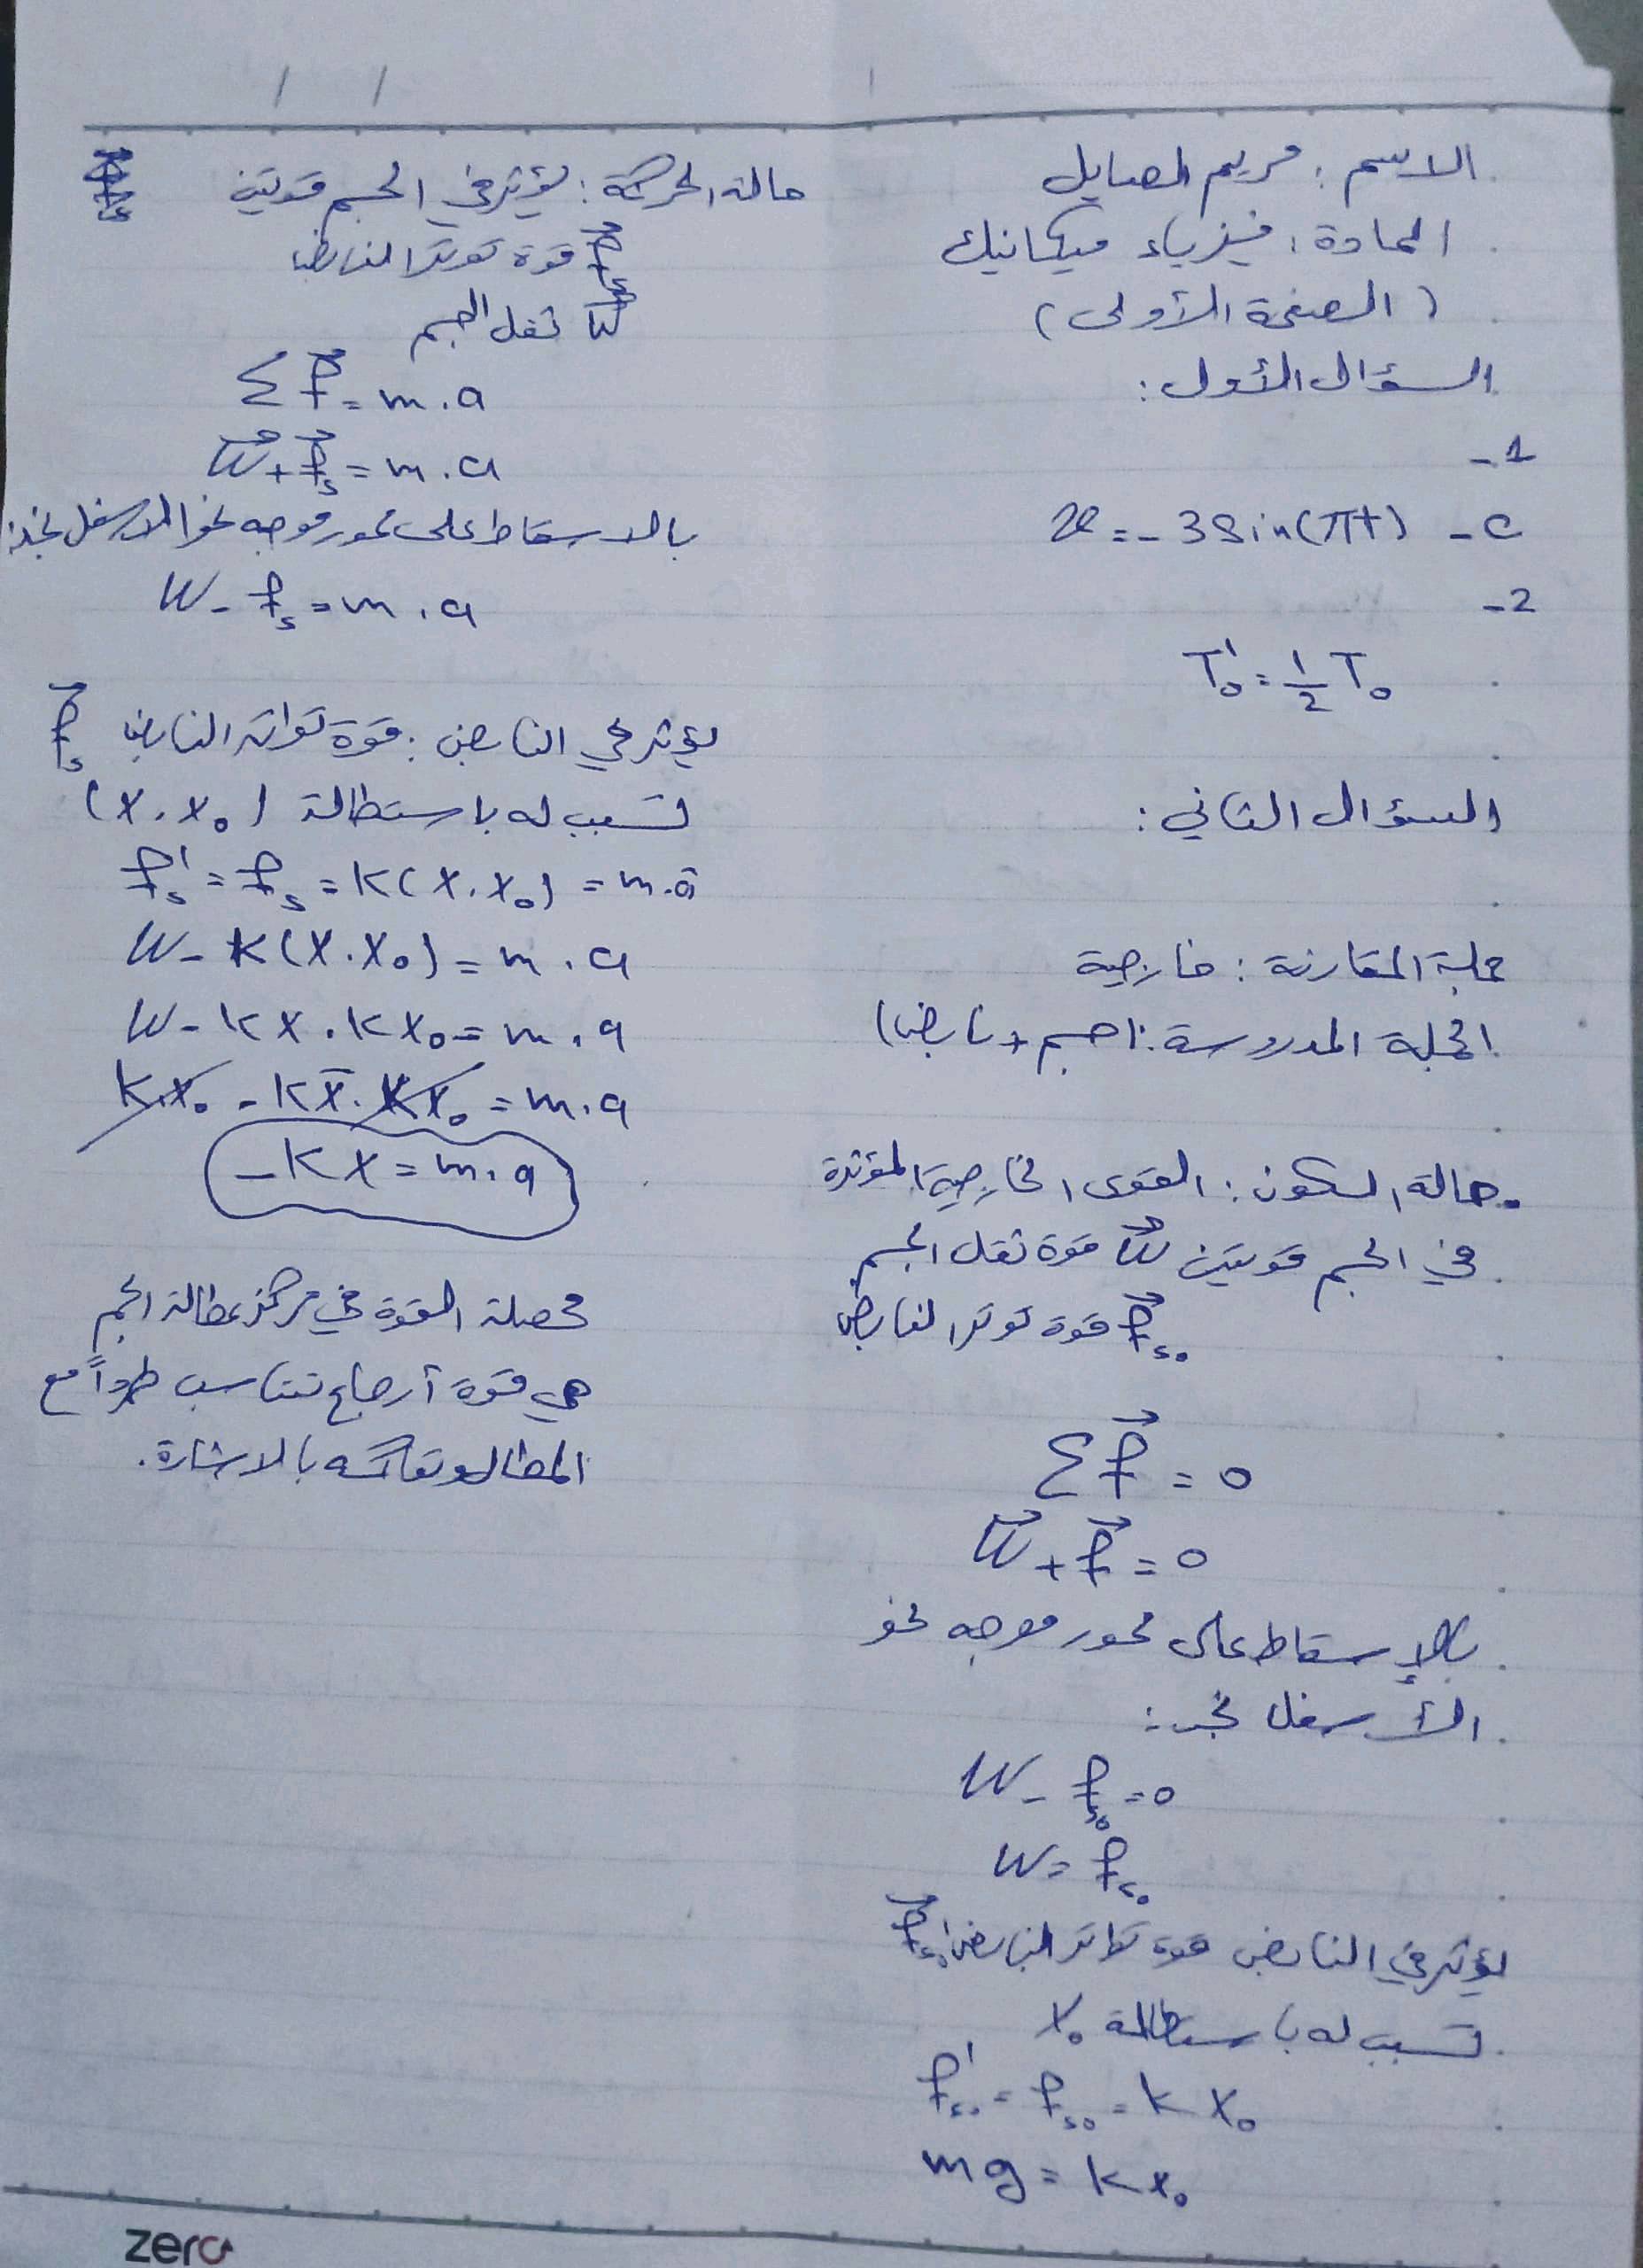 الاسم : مريم المصايل
المادة : فيزياء ميكانيك
(الصفحة الأولى)
السؤال الأول :
1-
c - x = -3 sin(πt)
2-
T₀' = 1/2 T₀
السؤال الثاني :
جملة المقارنة : خارجية
الجملة المدروسة : (جسم + نابض)
حالة السكون : القوى الخارجية المؤثرة
في الجسم قوتين W⃗ قوة ثقل الجسم
F⃗s₀ قوة توتر النابض
Σ F⃗ = 0
W⃗ + F⃗ = 0
بالإسقاط على محور موجه نحو
الأسفل نجد :
W - Fs₀ = 0
W = Fs₀
يؤثر في النابض قوة توتر النابض F⃗s₀'
تسبب له باستطالة x₀
Fs₀' = Fs₀ = k x₀
mg = k x₀
حالة الحركة : يؤثر في الجسم قوتين
F⃗s قوة توتر النابض
W⃗ ثقل الجسم
Σ F⃗ = m . a
W⃗ + F⃗s = m . a
بالاسقاط على محور موجه نحو الاسفل نجد :
W - Fs = m . a
يؤثر في النابض : قوة تواتر النابض F⃗s
تسبب له باستطالة (x . x₀)
Fs' = Fs = k(x . x₀) = m . a
W - k(x . x₀) = m . a
W - kx . kx₀ = m . a
k.x₀ - kx . kx₀ = m . a
-kx = m . a
محصلة القوة في مركز عطالة الجسم
هي قوة ارجاع تتناسب طرداً مع
المطال وتعاكسه بالاشارة .
zero